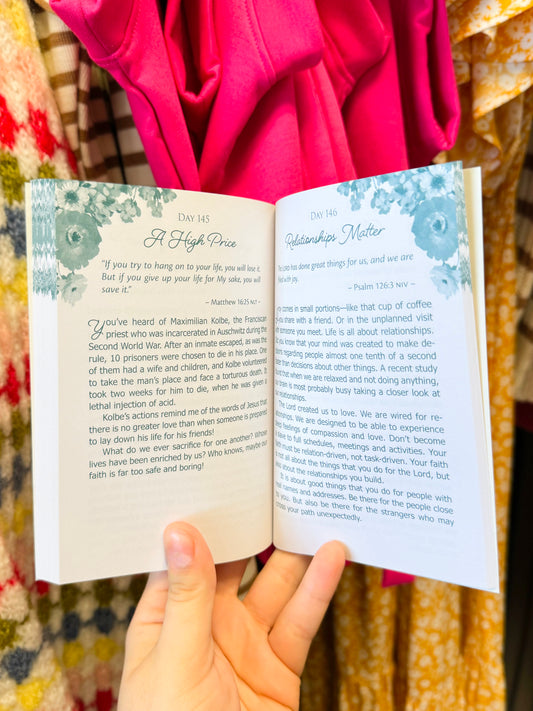 DAY 145
A High Price
"If you try to hang on to your life, you will lose it.
But if you give up your life for My sake, you will
save it."
– Matthew 16:25 NLT –
You've heard of Maximilian Kolbe, the Franciscan
priest who was incarcerated in Auschwitz during the
Second World War. After an inmate escaped, as was the
rule, 10 prisoners were chosen to die in his place. One
of them had a wife and children, and Kolbe volunteered
to take the man's place and face a torturous death. It
took two weeks for him to die, when he was given a
lethal injection of acid.
Kolbe's actions remind me of the words of Jesus that
there is no greater love than when someone is prepared
to lay down his life for his friends!
What do we ever sacrifice for one another? Whose
lives have been enriched by us? Who knows, maybe our
faith is far too safe and boring!
DAY 146
Relationships Matter
LORD has done great things for us, and we are
filled with joy.
– Psalm 126:3 NIV –
comes in small portions—like that cup of coffee
you share with a friend. Or in the unplanned visit
someone you meet. Life is all about relationships.
you know that your mind was created to make de-
regarding people almost one tenth of a second
than decisions about other things. A recent study
that when we are relaxed and not doing anything,
brain is most probably busy taking a closer look at
relationships.
The Lord created us to love. We are wired for re-
We are designed to be able to experience
feelings of compassion and love. Don't become
slave to full schedules, meetings and activities. Your
must be relation-driven, not task-driven. Your faith
all about the things that you do for the Lord, but
about the relationships you build.
It is about good things that you do for people with
names and addresses. Be there for the people close
you. But also be there for the strangers who may
cross your path unexpectedly.